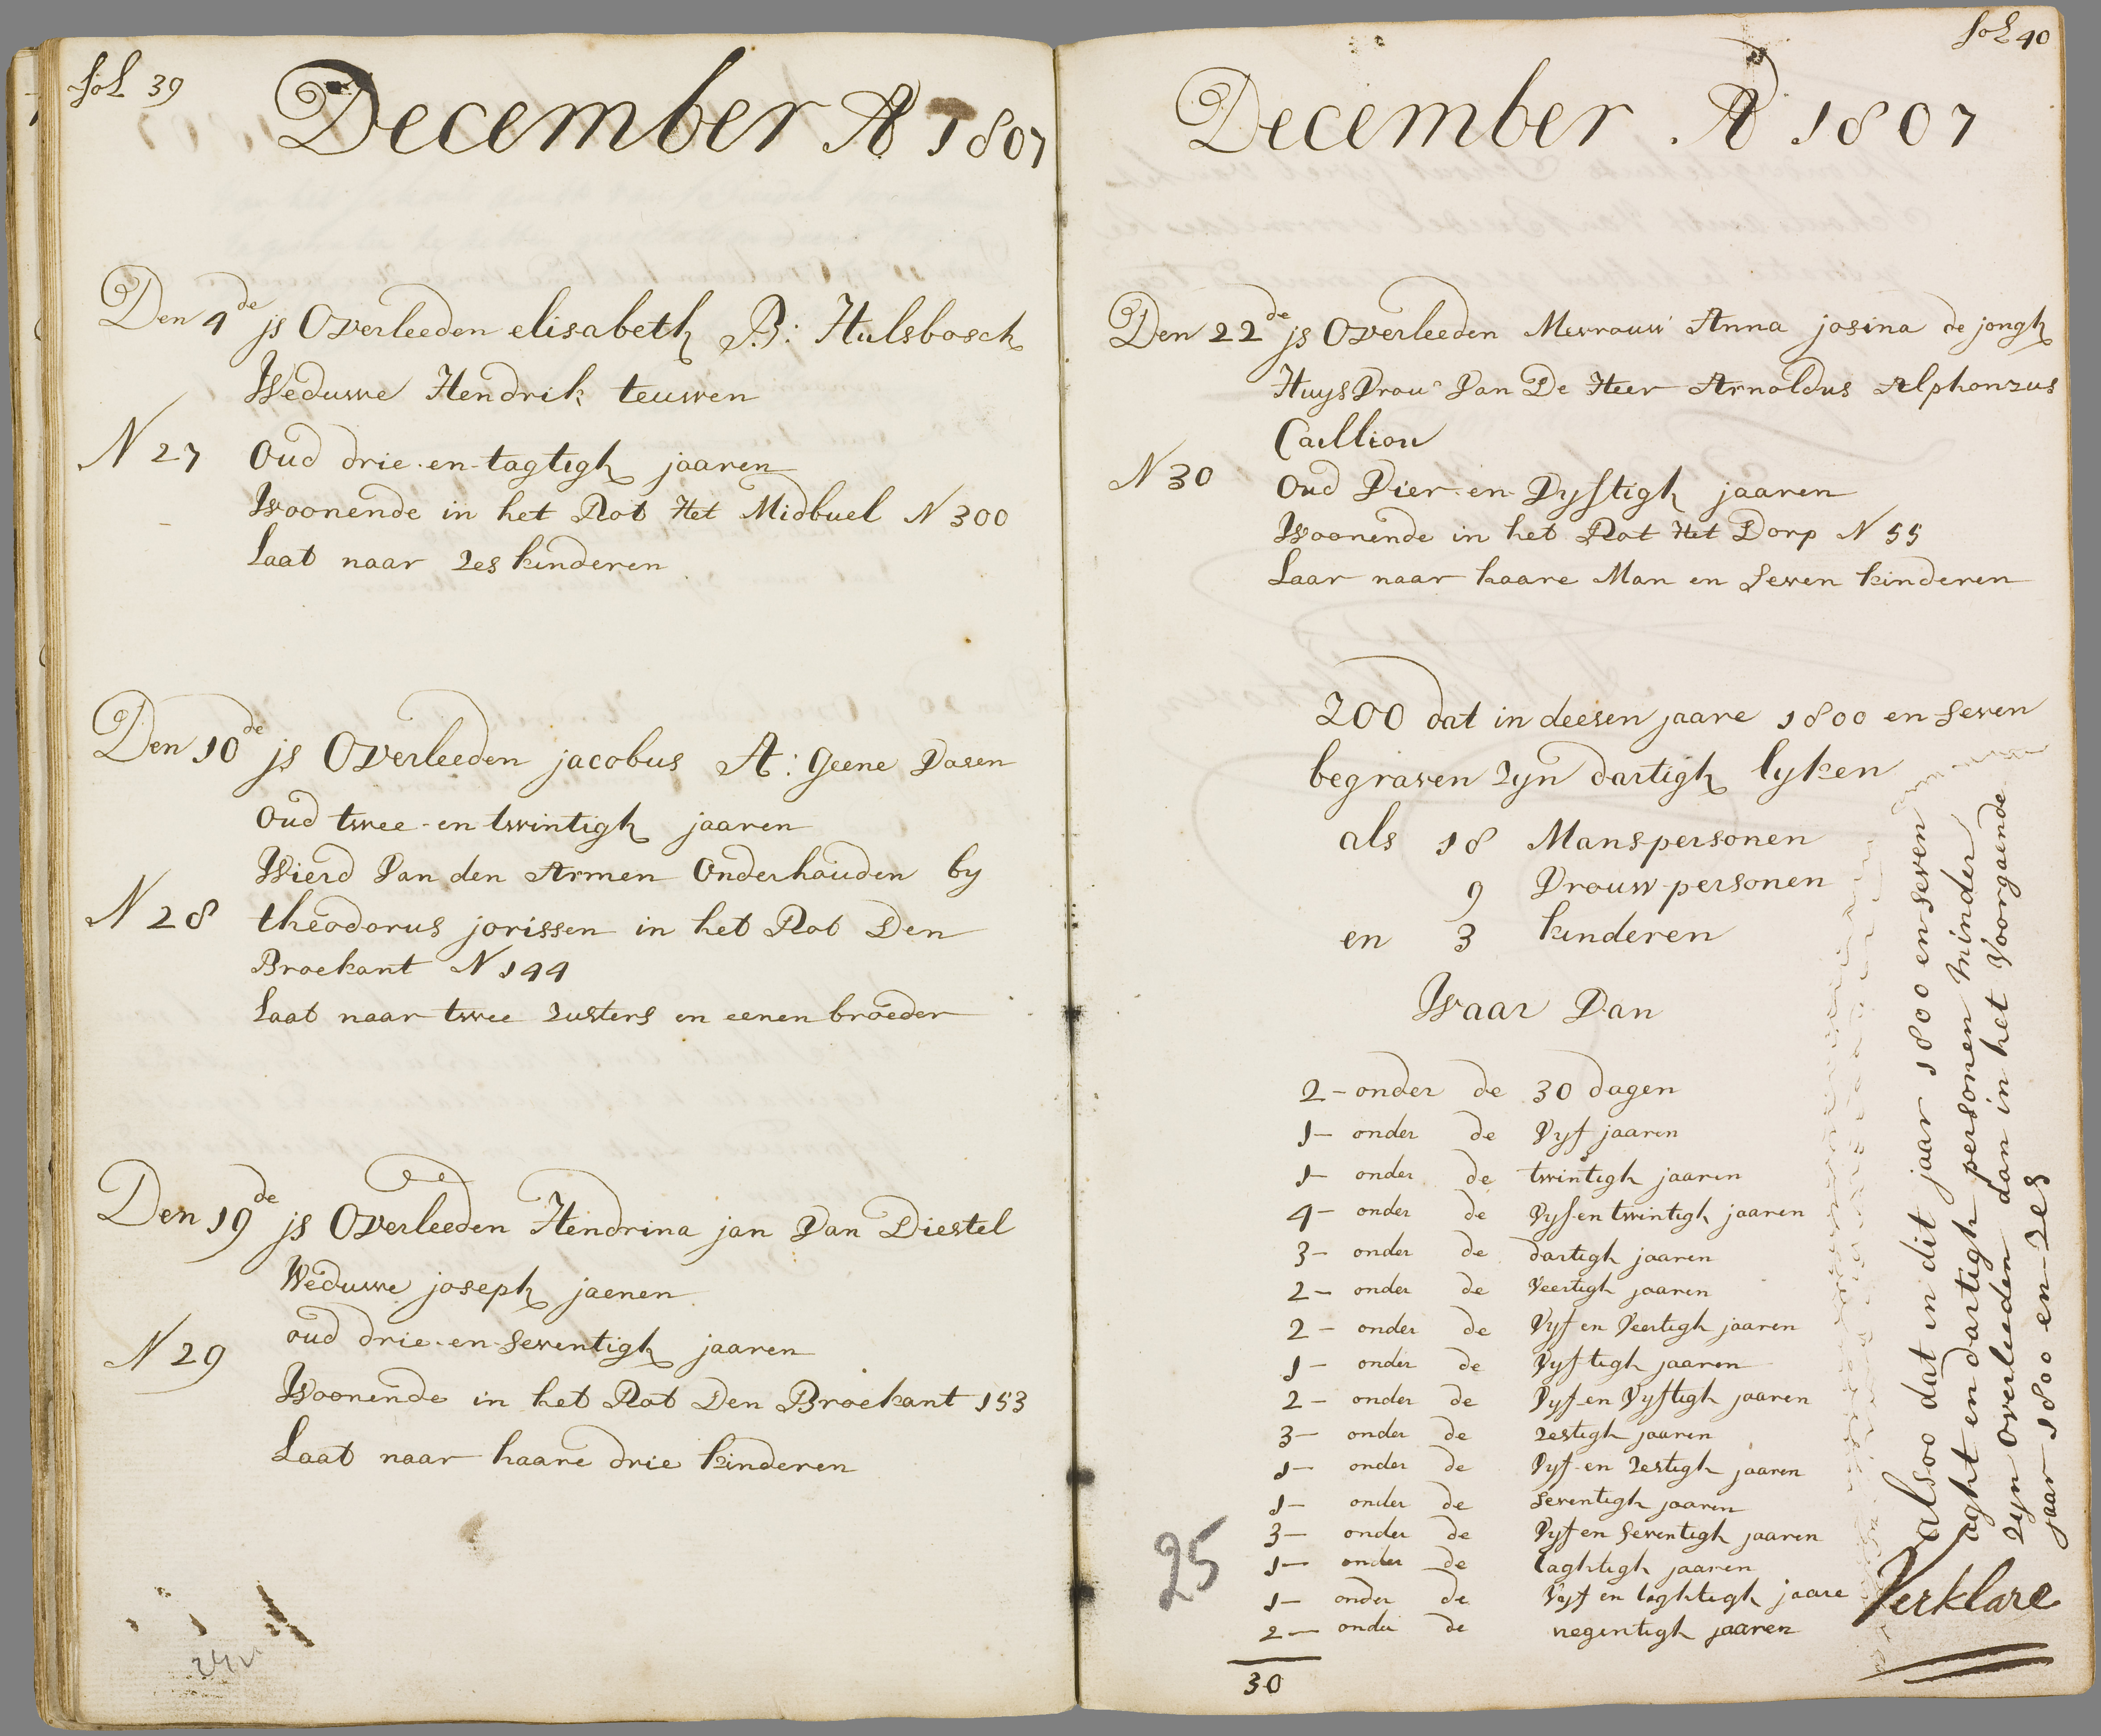 fol 39
December Ao 1807
Den 4de js Overleeden elisabeth B: Hulsbosch
Weduwe Hendrik teuwen
N 27 Oud drie-en-tagtigh jaaren
Woonende in het Rot Het Midbuel N 300
Laat naar 2es kinderen
Den 10de js Overleeden jacobus A: Geene Vasen
Oud twee-en twintigh jaaren
Wierd Van den Armen Onderhouden by
N 28 theodorus jorissen in het Rot Den
Broekant N 144
Laat naar twee zusters en eenen broeder
Den 19de js Overleeden Hendrina jan Van Diestel
Weduwe joseph jaenen
N 29 oud drie-en-seventigh jaaren
Woonende in het Rot Den Broekant 153
Laat naar haare drie kinderen
fol 40
December Ao 1807
Den 22de js Overleeden Mevrouw Anna josina de jongh
Huys Vrou Van De Heer Arnoldus Alphonzus
Cailliou
N 30 Oud Vier-en-Vyftigh jaaren
Woonende in het Rot Het Dorp N 55
Laar naar haare Man en Seven kinderen
Zoo dat in deesen jaare 1800 en seven
begraven zyn dartigh lyken
als 18 Manspersonen
9 Vrouw-personen
en 3 kinderen
Waar Van
2 - onder de 30 dagen
1 - onder de Vyf jaaren
1 - onder de twintigh jaaren
4 - onder de Vyf-en twintigh jaaren
3 - onder de dartigh jaaren
2 - onder de Veertigh jaaren
2 - onder de Vyf en Veertigh jaaren
1 - onder de Vyftigh jaaren
2 - onder de Vyf-en Vyftigh jaaren
3 - onder de zestigh jaaren
1 - onder de Vyf-en zestigh jaaren
1 - onder de seventigh jaaren
3 - onder de Vyf en Seventigh jaaren
1 - onder de taghtigh jaaren
1 - onder de Vyf en taghtigh jaare
2 - onder de negentigh jaaren
30
25
alsoo dat in dit jaar 1800 en seven
aght en dartigh personen minder
zyn overleeden dan in het Voorgaende
jaar 1800 en-zes
Verklare